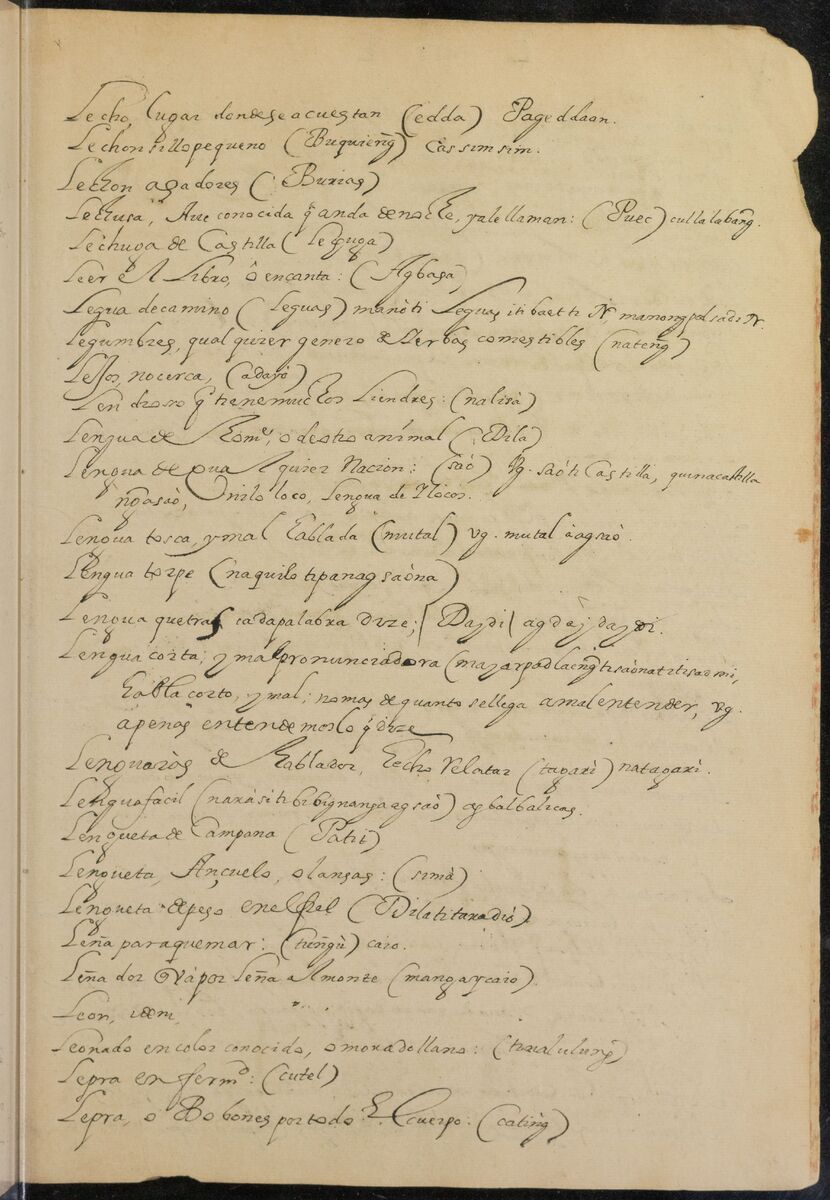 Lecho, lugar dondese acuestan (edda) Pageddaan.
Lechonsillo pequeno (Buquieng̃) Cassimsim.
Lechon asadores (Burias)
Lechusa, Aue conocida q̃ anda de noche, y ale llaman: (Puec) cullalabang̃.
Lechuga de Castilla (Lechuga)
Leer el Libro, ò en canta: (Agbasa)
Legua de camino (Leguas) manò ti Leguas iti baet ti N, manong pal sadi N.
Legumbres, qualquier genero de Yerbas comestibles (nateng̃)
Lejos, no cerca, (adayò)
Lendroso q̃ tiene muchos Liendres: (nalisà)
Lengua de Home, o de otro animal (Dila)
Lengua de qualquier Nacion: (saò) Vg. saò ti Castilla, quinacastilla
ng̃asaò, Yniloloco, Lengua de Ylocos.
Lengua tosca, y mal hablada (mutal) vg. mutal à agsaò.
Lengua torpe (naquilo ti panagsaòna)
Lengua que tras cada palabra dize; (Daydi) agdàydaydi.
Lengua corta, y mal pronunciadora
habla corto, y mal; no mas de quanto se llega a mal entender, vg.
apenas entendemoslo q̃ dize
Lenguaràs de Hablador, Hecho Relatar (tagari) natagari.
Lengua facil (naràsi ti bibignanga agsaò) ag balbalicas.
Lengueta de Campana (Patiì)
Lengueta, Ançuelo, o lansas: (simà)
Lengueta de peso en el fiel (Dila ti taradiò)
Leña para quemar: (tung̃ù) caio.
Leñador q̃ và por Leña al monte (mang̃aycaio)
Leon, idem
Leonado en color conocido, o morado llano:
Lepra enfermd: (cutel)
Lepra, ò Bobones por todo El Cuerpo: (cating̃)